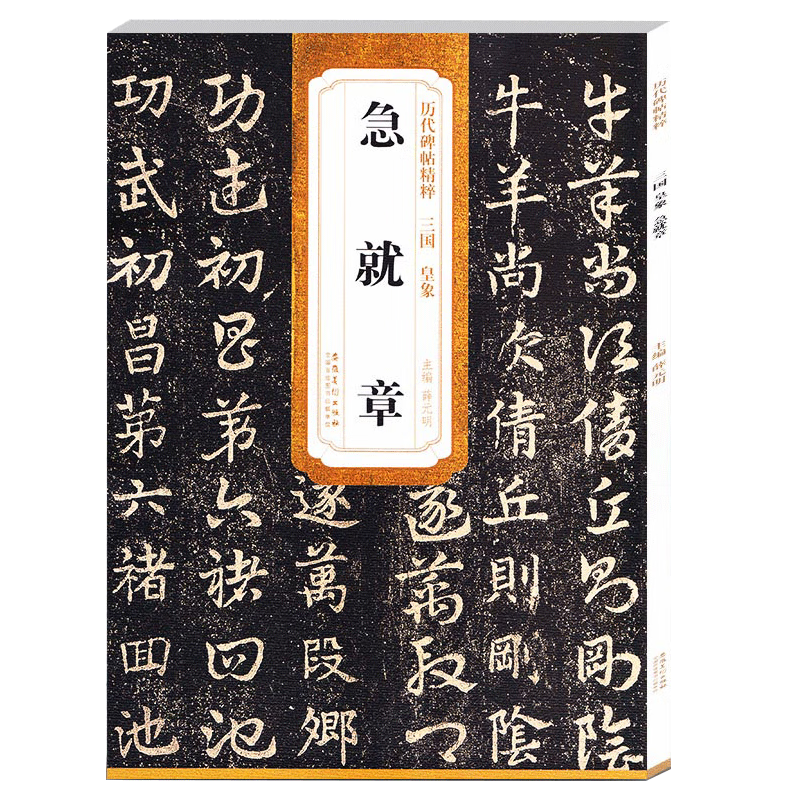 牛羊尚次倩丘則剛陰
牛羊尚次倩丘則剛陰
遂萬段卿
历代碑帖精粹 三国 皇象
主编 薛元明
急就章
安徽美术出版社
遂萬段卿
功武初昌第六褚回池
功武初昌第六褚回池
历代碑帖精粹 三国 皇象 急就章 主编 薛元明
安徽美术出版社